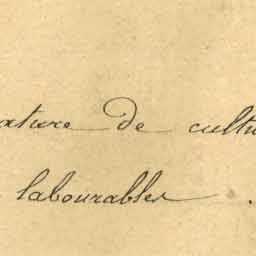 ature de cultu
labourables.